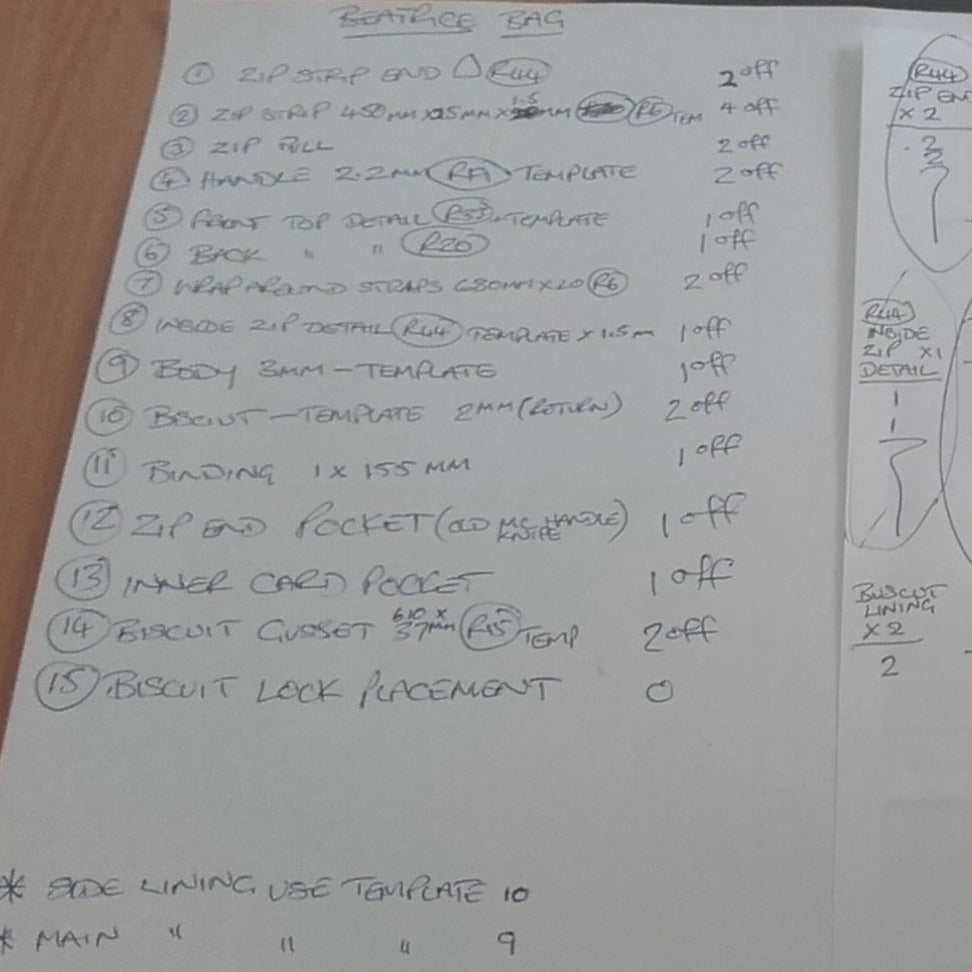 BEATRICE BAG
① ZIP STRIP END △ R44 2 off
② ZIP STRIP 450MM X 25MM X 1.5 MM R6 TEM 4 off
③ ZIP PULL 2 off
④ HANDLE 2.2MM TEMPLATE 2 off
⑤ FRONT TOP DETAIL R33 TEMPLATE 1 off
⑥ BACK " " R20 1 off
⑦ WRAP AROUND STRAPS 680MM X 20 R6 2 off
⑧ INSIDE ZIP DETAIL R44 TEMPLATE X 1.5M 1 off
⑨ BODY 3MM - TEMPLATE 1 off
⑩ BISCUT - TEMPLATE 2MM (RETURN) 2 off
⑪ BINDING 1 X 155 MM 1 off
⑫ ZIP END POCKET (OLD MC HANDLE KNIFE) 1 off
⑬ INNER CARD POCKET 1 off
⑭ BISCUIT GUSSET 610 X 37MM R15 TEMP 2 off
⑮ BISCUIT LOCK PLACEMENT 0
* SIDE LINING USE TEMPLATE 10
* MAIN " " " 9
R44
ZIP END
X 2
2
2
R44
INSIDE
ZIP X1
DETAIL
1
1
BUSCUT
LINING
X 2
2